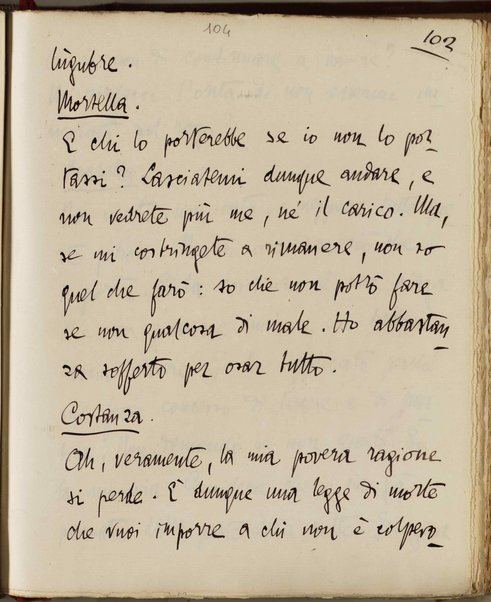 104
102
lùgubre.
Mortella.
E chi lo porterebbe se io non lo por-
tassi? Lasciatemi dunque andare, e
non vedrete più me, né il carico. Ma,
se mi costringete a rimanere, non so
quel che farò: so che non potrò fare
se non qualcosa di male. Ho abbastan-
za sofferto per osar tutto.
Costanza.
Ah, veramente, la mia povera ragione
si perde. È dunque una legge di morte
che vuoi imporre a chi non è colpevo-